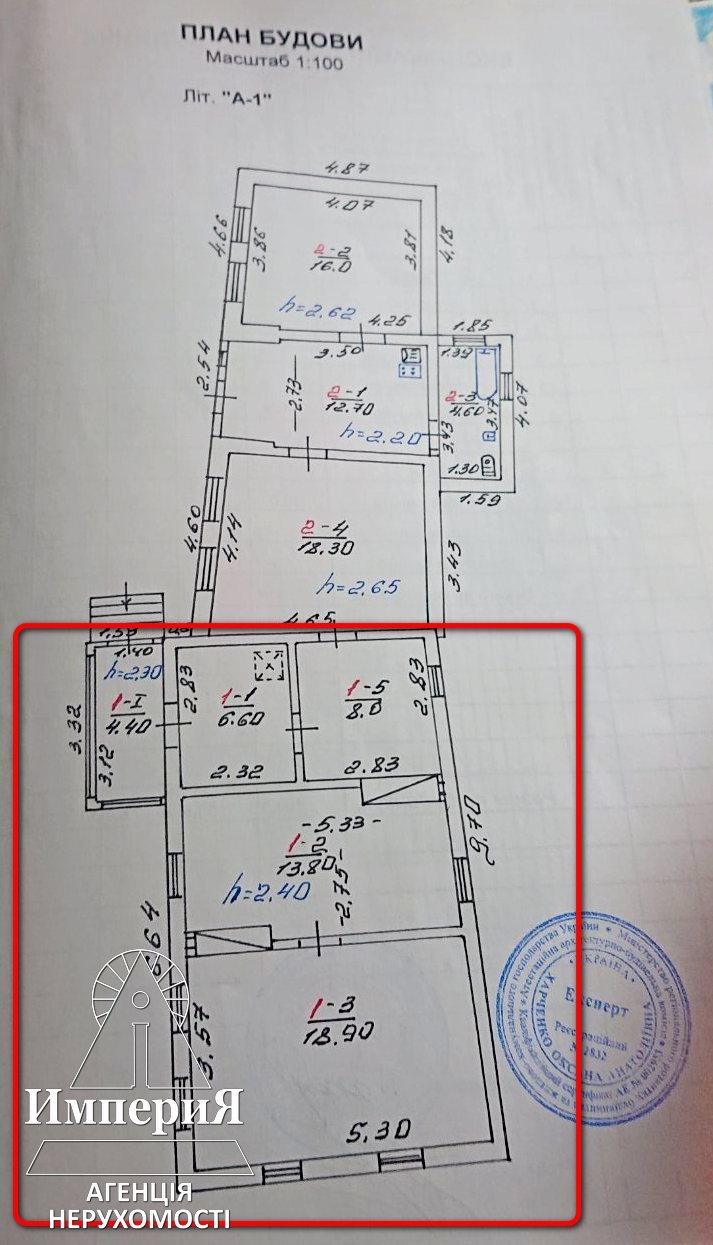 ПЛАН БУДОВИ
Масштаб 1:100
Літ. "А-1"
4.87
4.07
4.66
3.86
2-2
16.0
3.81
4.18
h=2.62
4.25
1.85
3.50
1.39
2.54
2.73
2-1
12.70
2-3
4.60
3.47
4.07
h=2.20
3.43
1.30
1.59
4.60
4.14
2-4
18.30
3.43
h=2.65
4.65
1.40
h=2.30
1-I
4.40
3.32
3.12
2.83
1-1
6.60
1-5
8.0
2.83
2.32
2.83
-5.33-
1-2
13.80
-2.75-
9.70
h=2.40
1-3
18.90
3.57
5.30
УКРАЇНА
Експерт
Реєстраційний
№2832
ХАРЧЕНКО ОКСАНА АНАТОЛІЇВНА
ИмпериЯ
АГЕНЦІЯ
НЕРУХОМОСТІ